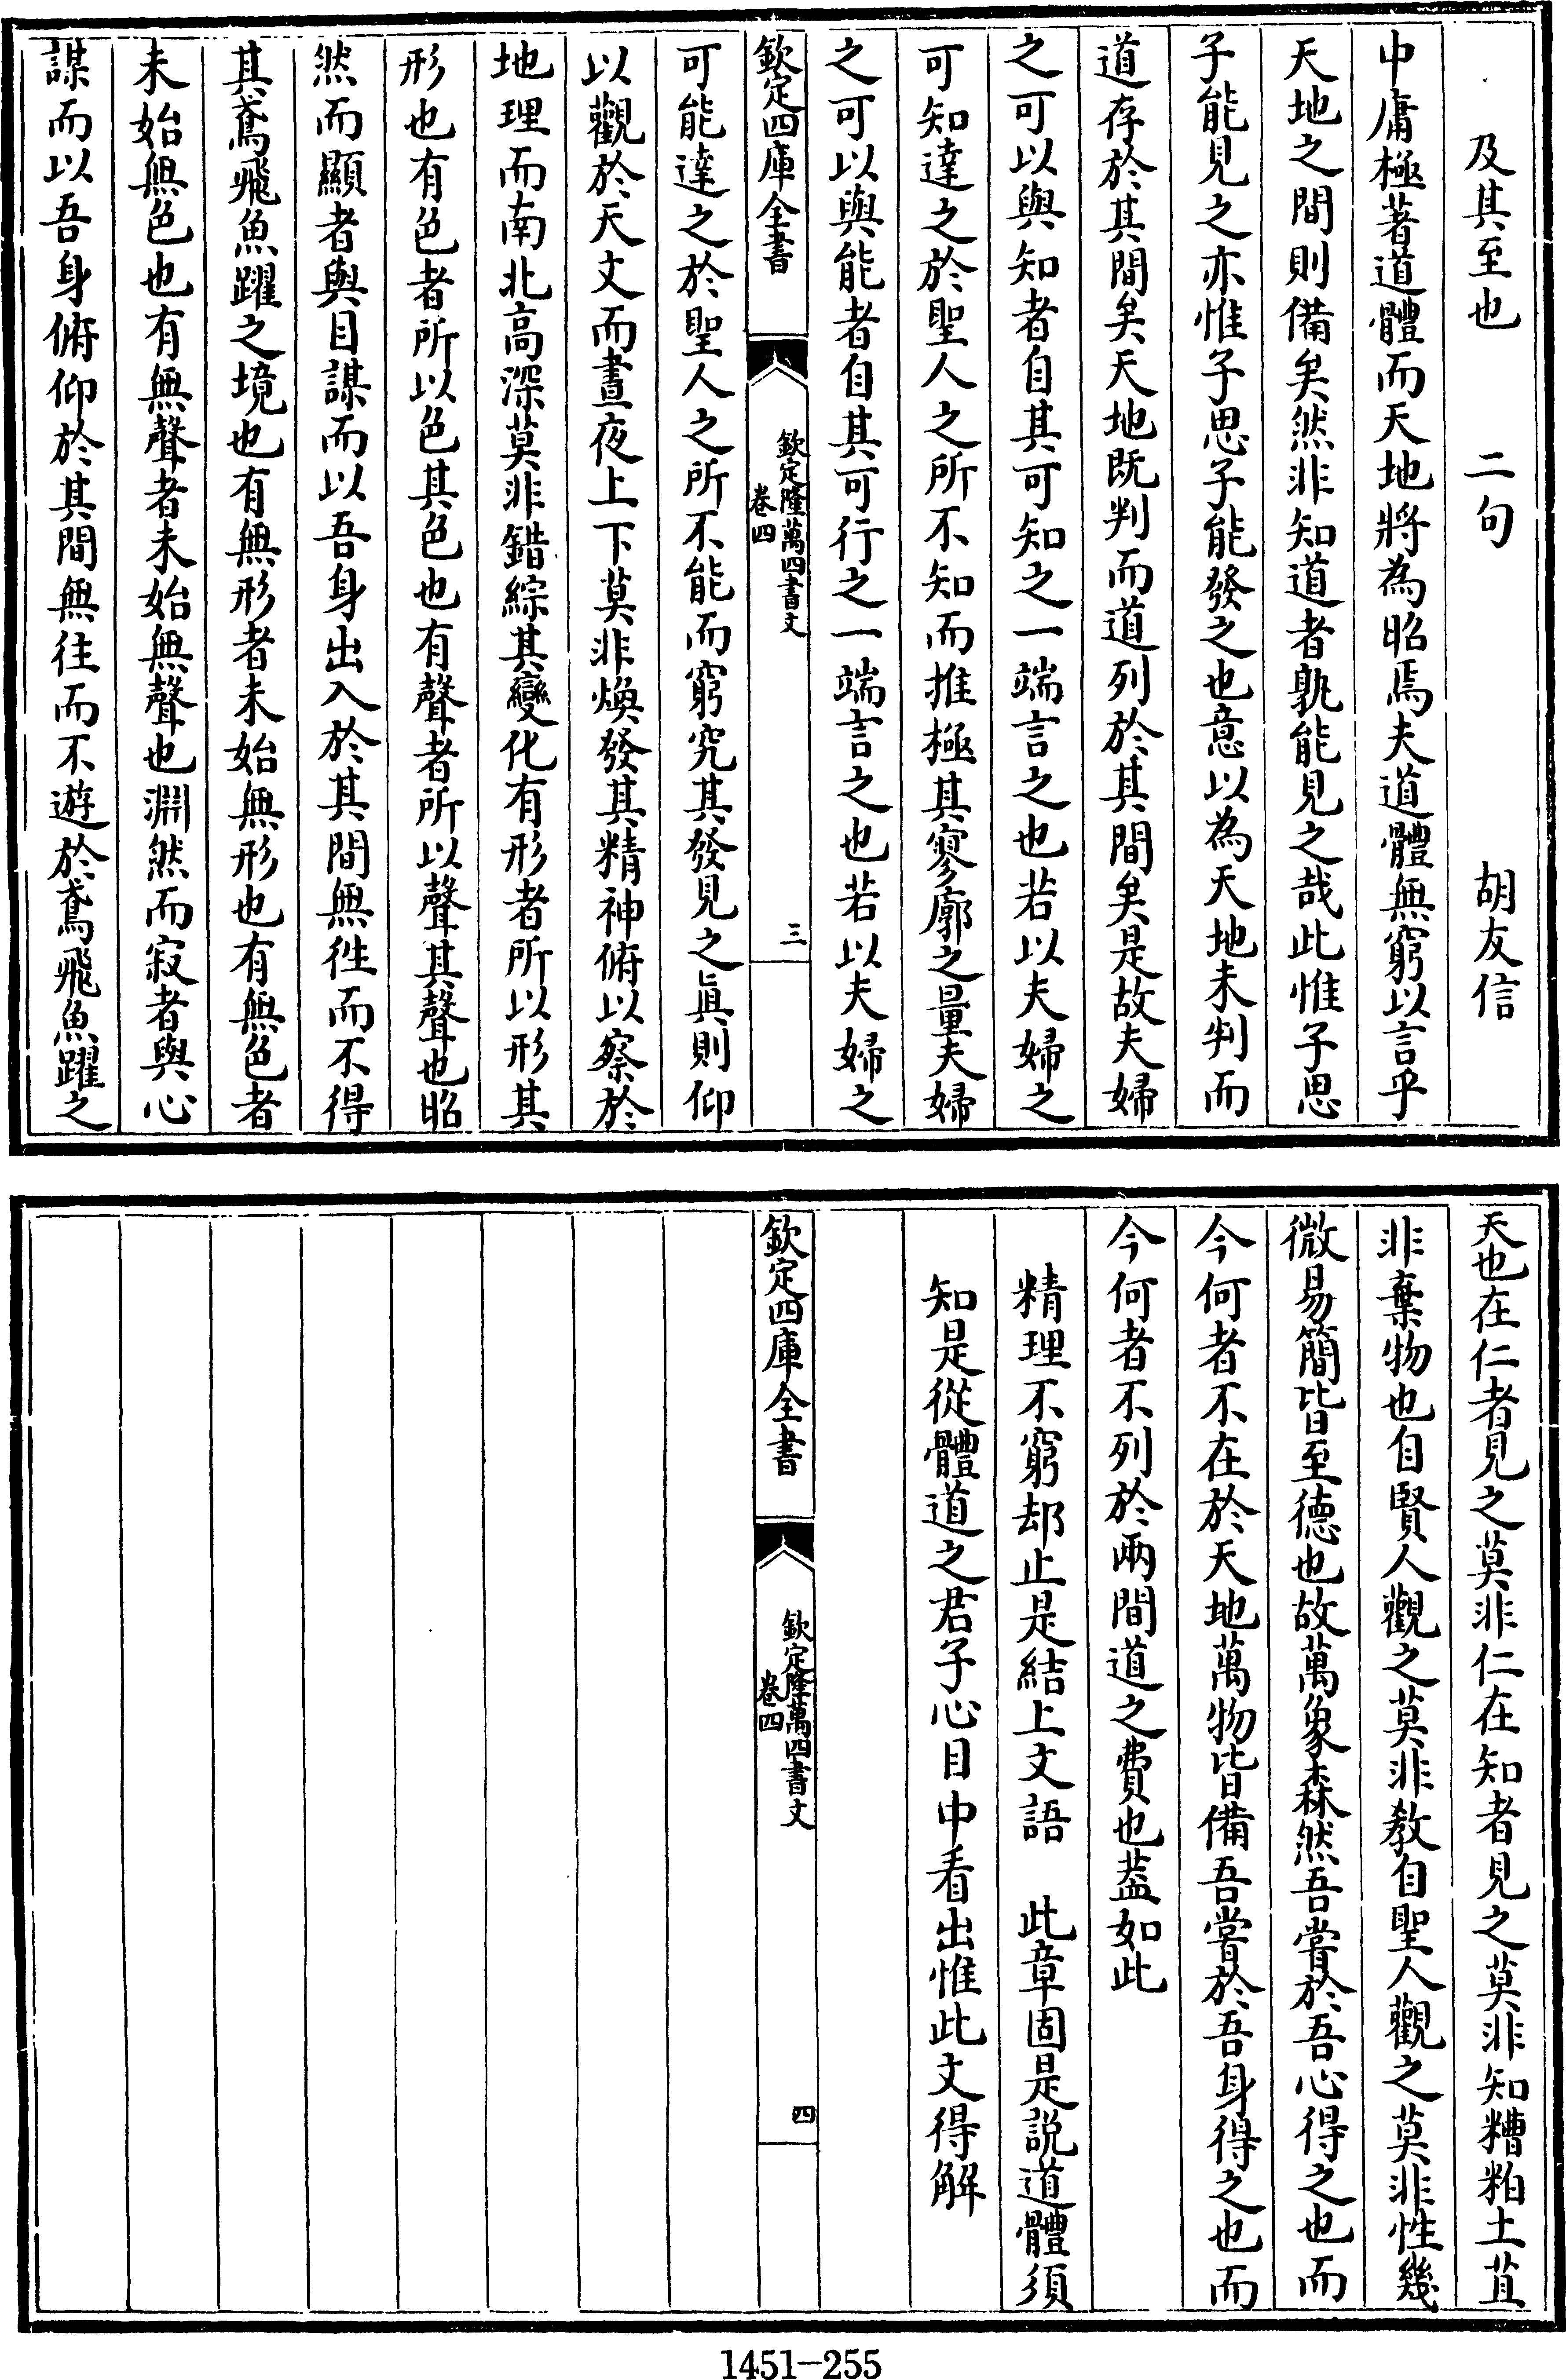 及其至也　二句　胡友信
中庸極著道體而天地將為昭焉夫道體無窮以言乎
天地之間則備矣然非知道者孰能見之哉此惟子思
子能見之亦惟子思子能發之也意以為天地未判而
道存於其間矣天地既判而道列於其間矣是故夫婦
之可以與知者自其可知之一端言之也若以夫婦之
可知達之於聖人之所不知而推極其寥廓之量夫婦
之可以與能者自其可行之一端言之也若以夫婦之
欽定四庫全書
欽定隆萬四書文
卷四
三
可能達之於聖人之所不能而窮究其發見之眞則仰
以觀於天文而晝夜上下莫非煥發其精神俯以察於
地理而南北高深莫非錯綜其變化有形者所以形其
形也有色者所以色其色也有聲者所以聲其聲也昭
然而顯者與目謀而以吾身出入於其間無徃而不得
其鳶飛魚躍之境也有無形者未始無形也有無色者
未始無色也有無聲者未始無聲也淵然而寂者與心
謀而以吾身俯仰於其間無往而不遊於鳶飛魚躍之
天也在仁者見之莫非仁在知者見之莫非知糟粕土苴
非棄物也自賢人觀之莫非教自聖人觀之莫非性幾
微易簡皆至德也故萬象森然吾嘗於吾心得之也而
今何者不在於天地萬物皆備吾嘗於吾身得之也而
今何者不列於兩間道之費也葢如此
精理不窮却止是結上文語　此章固是説道體須
知是從體道之君子心目中看出惟此文得解
欽定四庫全書
欽定隆萬四書文
卷四
四
1451-255